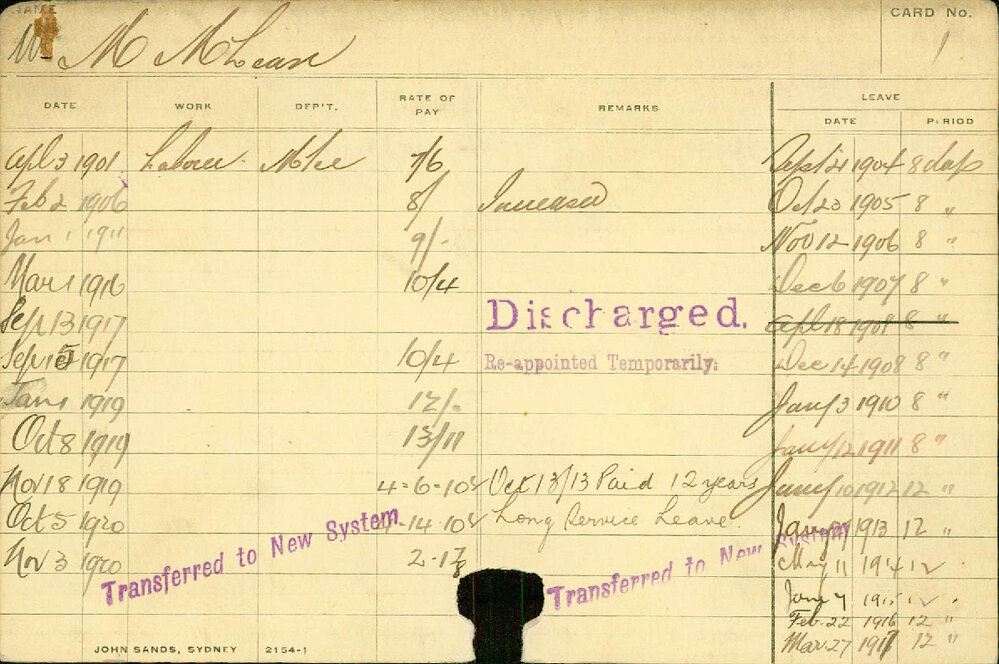 NAME CARD No.
M McLean 1
DATE WORK DEP'T. RATE OF PAY REMARKS LEAVE
DATE PERIOD
Apl 3 1901 Labour 7/6 Apl 21 1904 8 days
Feb 2 1906 8/ Increased Oct 23 1905 8 "
Jan 1 1911 9/- Nov 12 1906 8 "
Mar 1 1916 10/4 Dec 6 1907 8 "
Sep 13 1917 Discharged. Apl 18 1908 8 "
Sep 15 1917 10/4 Re-appointed Temporarily. Dec 14 1908 8 "
Jan 1 1919 12/- Jany 3 1910 8 "
Oct 8 1919 13/11 Jany 12 1911 8 "
Nov 18 1919 4-6-10 Oct 13/13 Paid 12 years Jany 10 1912 12 "
Oct 5 1920 -14-10 Long Service Leave. Jany 1913 12 "
Nov 3 1920 2-17 May 11 1914 12 "
Transferred to New System Transferred to New System
Jany 4 1915 12 "
Feb. 22 1916 12 "
Mar. 27 1917 12 "
JOHN SANDS, SYDNEY 2154-1